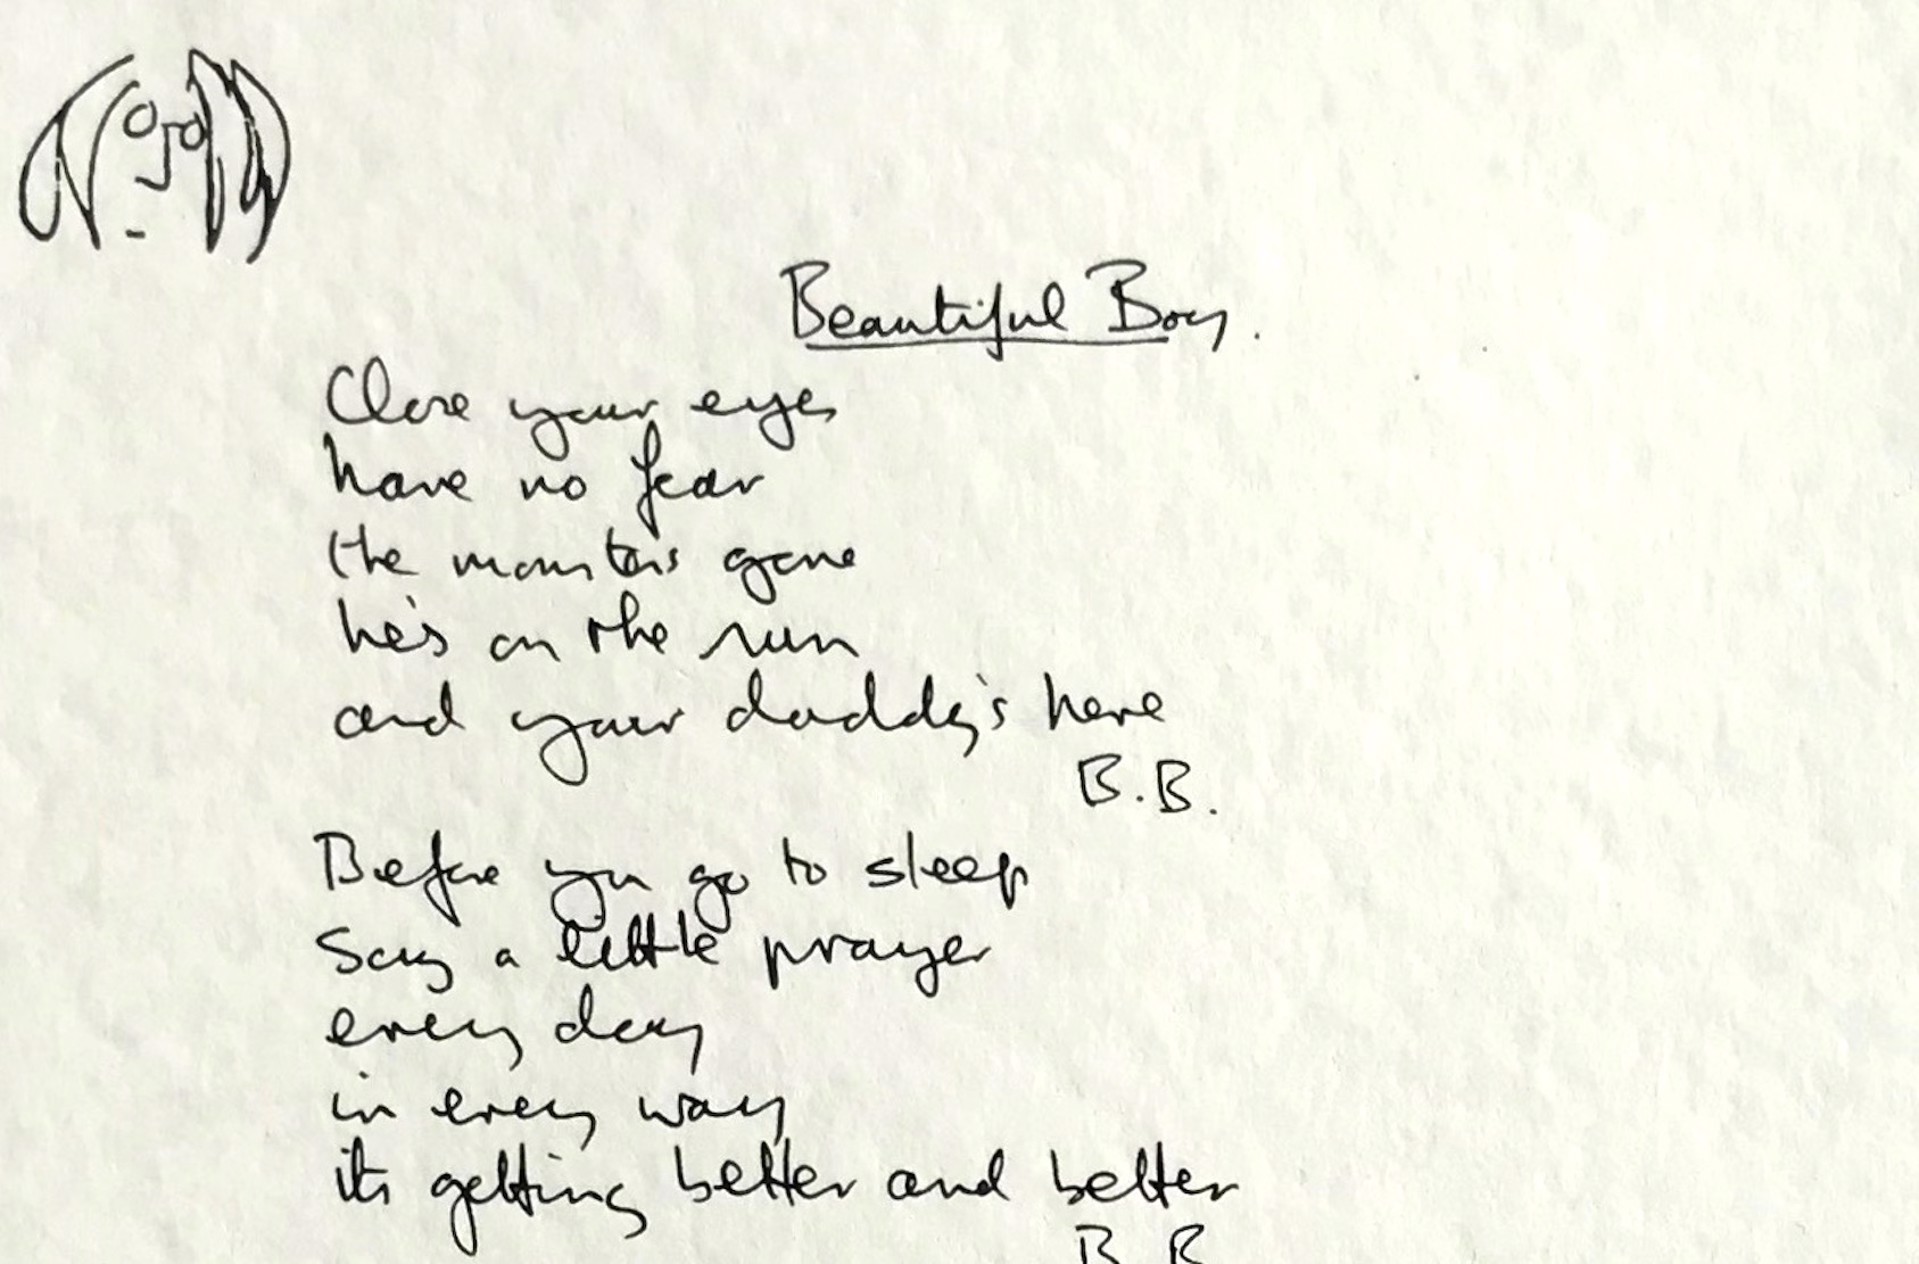 Beautiful Boy.
Close your eyes
have no fear
the monsters gone
he's on the run
and your daddy's here
B.B.
Before you go to sleep
Say a little prayer
every day
in every way
its getting better and better
B.B